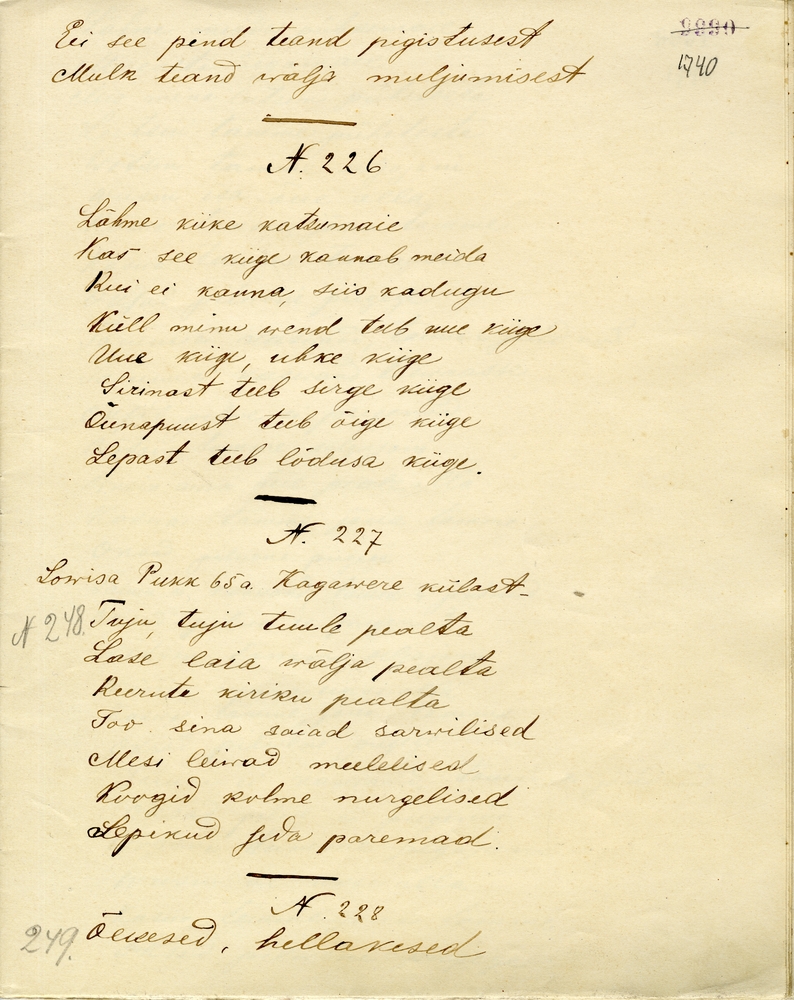 9990
1740
Ei see pind teand pigistusest
Mulk teand wälja muljumisest
N. 226
Lähme kiike katsumaie
Kas see kiige kannab meida
Kui ei kanna, siis kadugu
Küll minu wend teeb uue kiige
Uue kiige, uhke kiige
Sirinast teeb sirge kiige
Õunapuust teeb õige kiige
Lepast teeb lõdusa kiige.
N. 227
Lowisa Pukk 65 a. Kagawere külast
N 248. Tuju, tuju tuule pealta
Lase laia wälja pealta
Keerute kiriku pealta
Too sina saiad sarwilised
Mesi leiwad meelelised
Koogid kolme nurgelised
Lepikud seda paremad.
N. 228
249. Õekesed, hellakesed